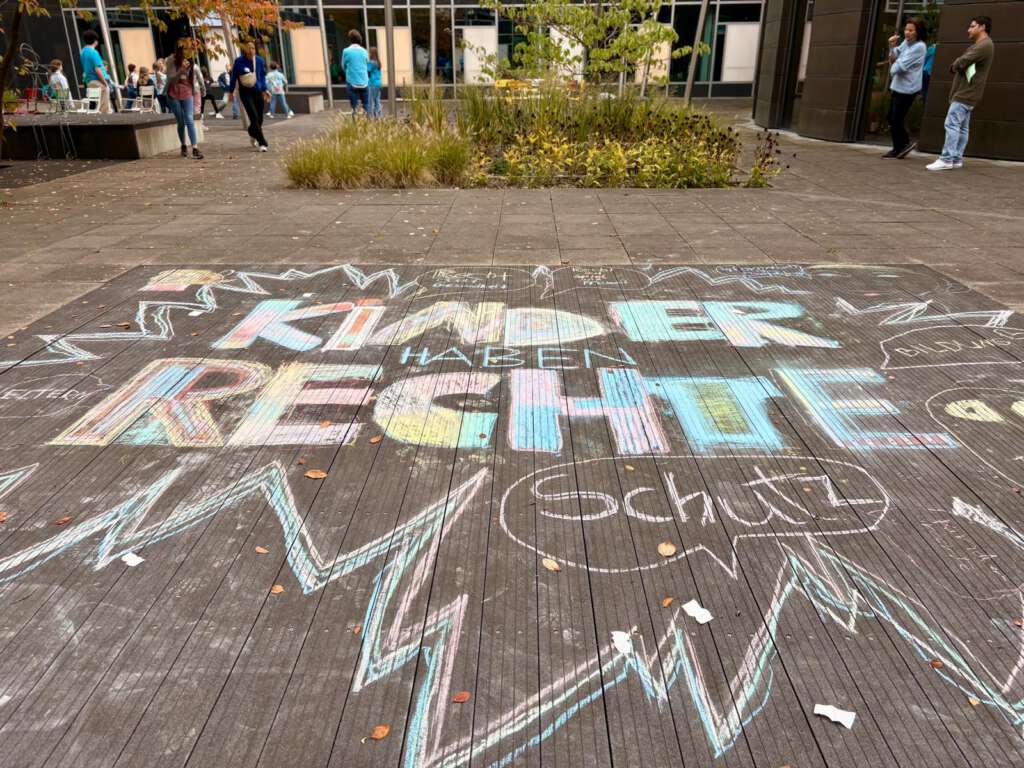 KINDER
HABEN
RECHTE
BILDUNG
Schutz